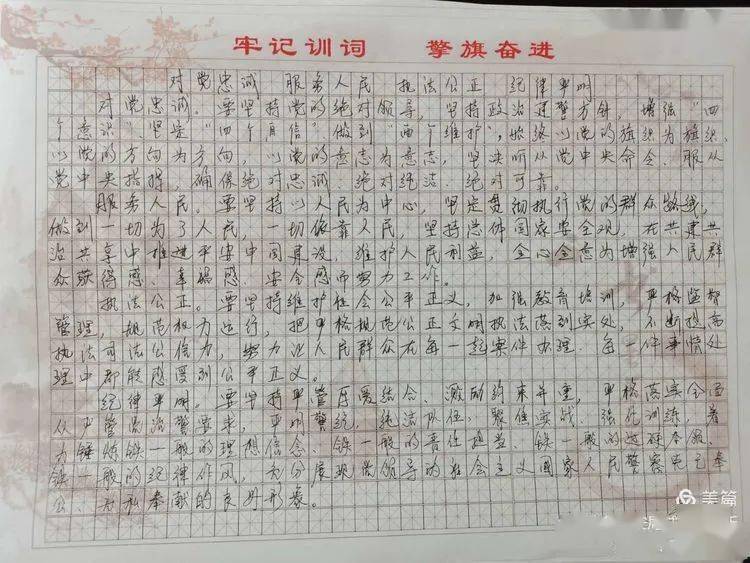 牢记训词 擎旗奋进
对党忠诚 服务人民 执法公正 纪律严明
对党忠诚。要坚持党的绝对领导,坚持政治建警方针,增强“四
个意识”坚定“四个自信”做到“两个维护”,始终以党的旗织为旗织,
以党的方向为方向,以党的意志为意志,坚决听从党中央命令、服从
党中央指挥,确保绝对忠诚、绝对纯洁、绝对可靠。
服务人民。要坚持以人民为中心,坚定贯彻执行党的群众路线,
做到一切为了人民,一切依靠人民,坚持总体国家安全观,在共建共
治共享中推进平安中国建设,维护人民利益,全心全意为增强人民群
众获得感、幸福感、安全感而努力工作。
执法公正。要坚持维护社会公平正义,加强教育培训,严格监督
管理,规范权力运行,把严格规范公正文明执法落到实处,不断提高
执法司法公信力,努力让人民群众在每一起案件办理、每一件事情处
理中都能感受到公平正义。
纪律严明。要坚持严管厚爱结合、激励约束并重,严格落实全面
从严管党治警要求,严明警纪,纯洁队伍,聚焦实战,强化训练,着
力锤炼铁一般的理想信念、铁一般的责任担当、铁一般的过硬本领、
铁一般的纪律作风,充分展现党领导的社会主义国家人民警察克己奉
公、无私奉献的良好形象。
美篇